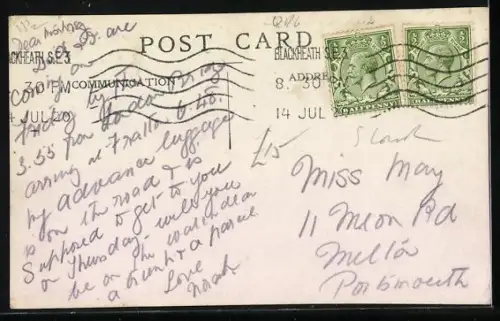 POST CARD
BLACKHEATH S.E.3
8.30 PM
14 JUL 20
COMMUNICATION
ADDRE
BLACKHEATH S
8.30
14 JUL
HALFPENNY
HALFPENNY
Dear
are
coming on
Friday by the
3.55 from London Bridge
arriving at Fratton 6.45.
My advance luggage
is on the road & is
supposed to get to you
on Thursday. Will you
be on the watch dear
a trunk & a parcel
Love
Norah
£15
Miss May
11 Meon Rd
Milton
Portsmouth